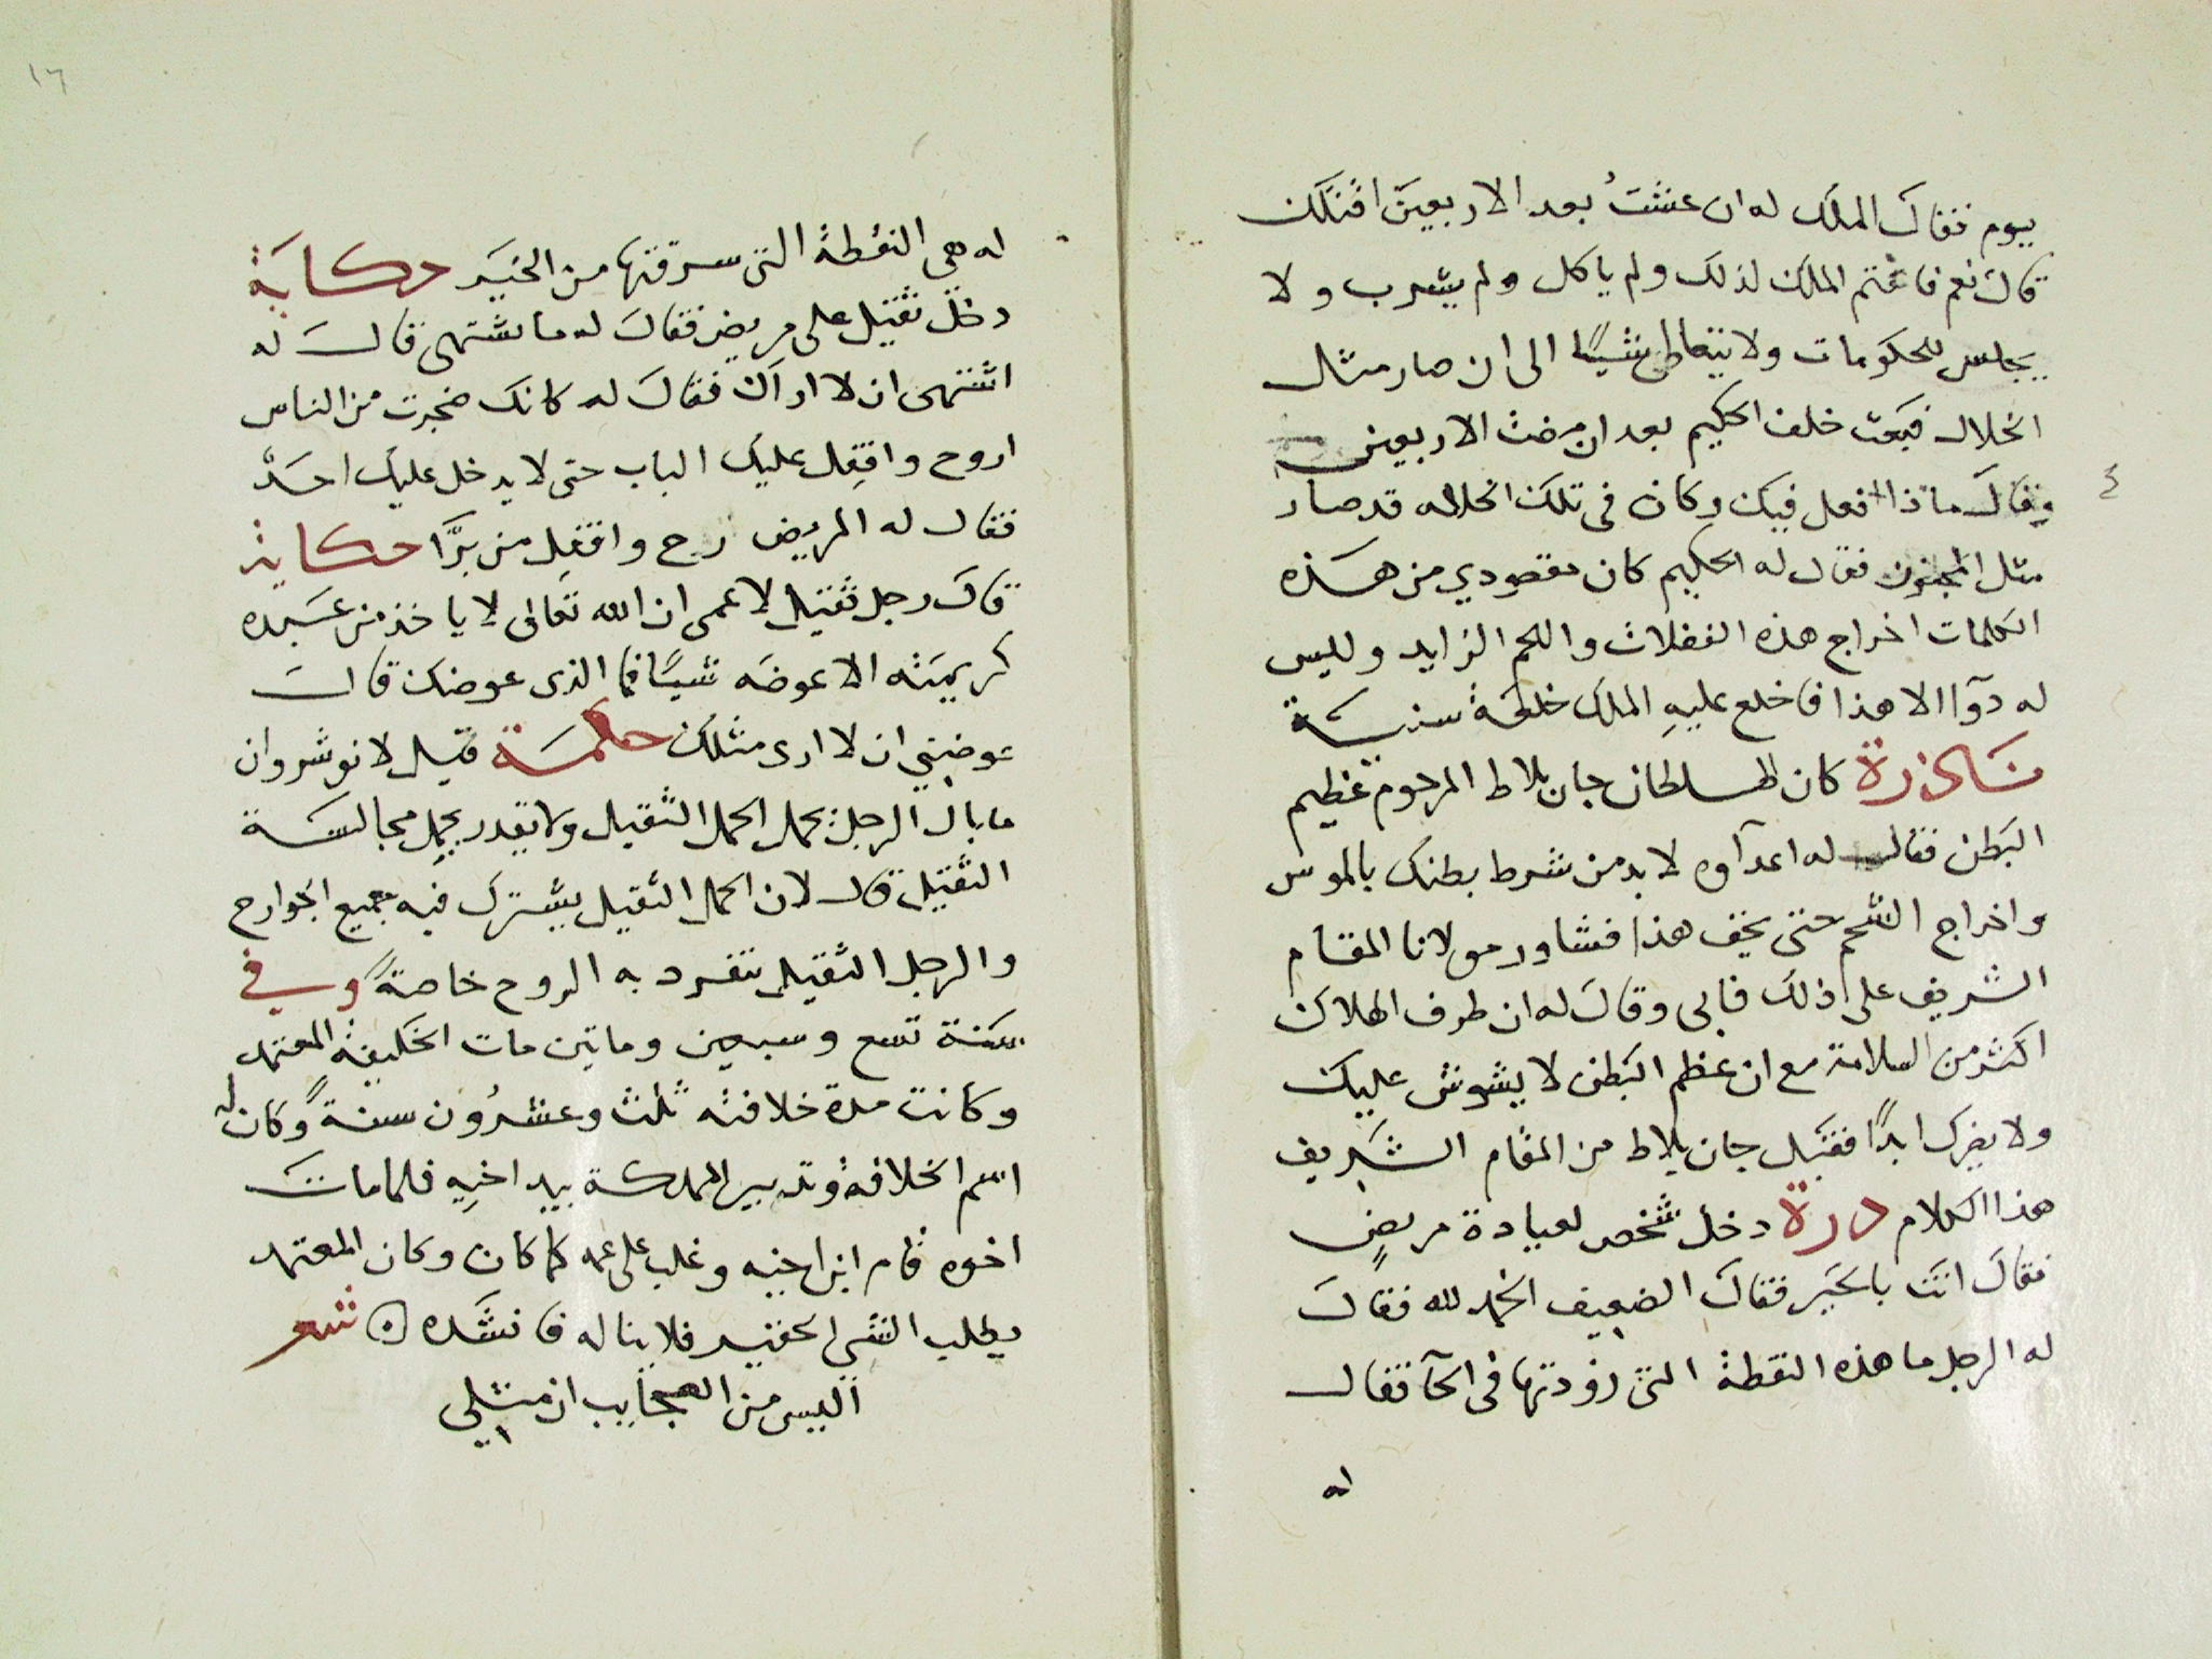 بيوم فقال الملك له ان عشتُ بعد الاربعين اقتلك
قال نعم فاغتم الملك لذلك ولم ياكل ولم يشرب ولا
يجلس للحكومات ولا يتعاطى شيًا الى ان صار مثل
الخلال فبعث خلف الحكيم بعد ان مضت الاربعين
وقال ماذا افعل فيك وكان فى تلك الحلاله قد صار
مثل المجنون فقال له الحكيم كان مقصودي من هذه
الكلمات اخراج هذه الفضلات واللحم الزايد وليس
له دوآ الا هذا فاخلع عليهِ الملك خلعة سنية
نادرة كان السلطان جان بلاط المرحوم عظيم
البطن فقال له اعدآوه لا بد من شرط بطنك بالموس
واخراج الشحم حتى يخف هذا فشاور مولانا المقام
الشريف على ذلك فابى وقال له ان طرف الهلاك
اكثر من السلامة مع ان عظم البطن لا يشوش عليك
ولا يضرك ابدًا فقبل جان بلاط من المقام الشريف
هذا الكلام درة دخل شخص لعيادة مريضٍ
فقال انت بالخير فقال الضعيف الحمد لله فقال
له الرجل ما هذه النقطة التى زودتها فى الحآ فقال
له
١٦
له هي النقطة التى سرقتها من الخير حكاية
دخل ثقيل على مريض فقال له ما تشتهى قال له
اشتهى ان لا اراك فقال له كانك ضجرت من الناس
اروح واقفِل عليك الباب حتى لا يدخل عليك احدٌ
فقال له المريض رح واقفِل من برَّا حكاية
قال رجل ثقيل لاعمى ان الله تعالى لا ياخذ من عبده
كريمته الا عوضه شيًا فما الذى عوضك قال
عوضني ان لا ارى مثلك حكمة قيل لانوشروان
ما بال الرجل يحمل الحمل الثقيل ولا يقدر يحمل مجالسة
الثقيل قال لان الحمل الثقيل يشترك فيه جميع الجوارح
والرجل الثقيل تنفرد به الروح خاصةً وفي
سنة تسع وسبعين وماتين مات الخليفة المعتمد
وكانت مدة خلافته ثلث وعشرُون سنةً وكان له
اسم الخلافة وتدبير المملكة بيد اخيهِ فلما مات
اخوه قام ابن اخيه وغلب على عمه كما كان وكان المعتمد
يطلب الشى الحقير فلا يناله فانشده ه شعر
اليس من العجايب ان مثلي